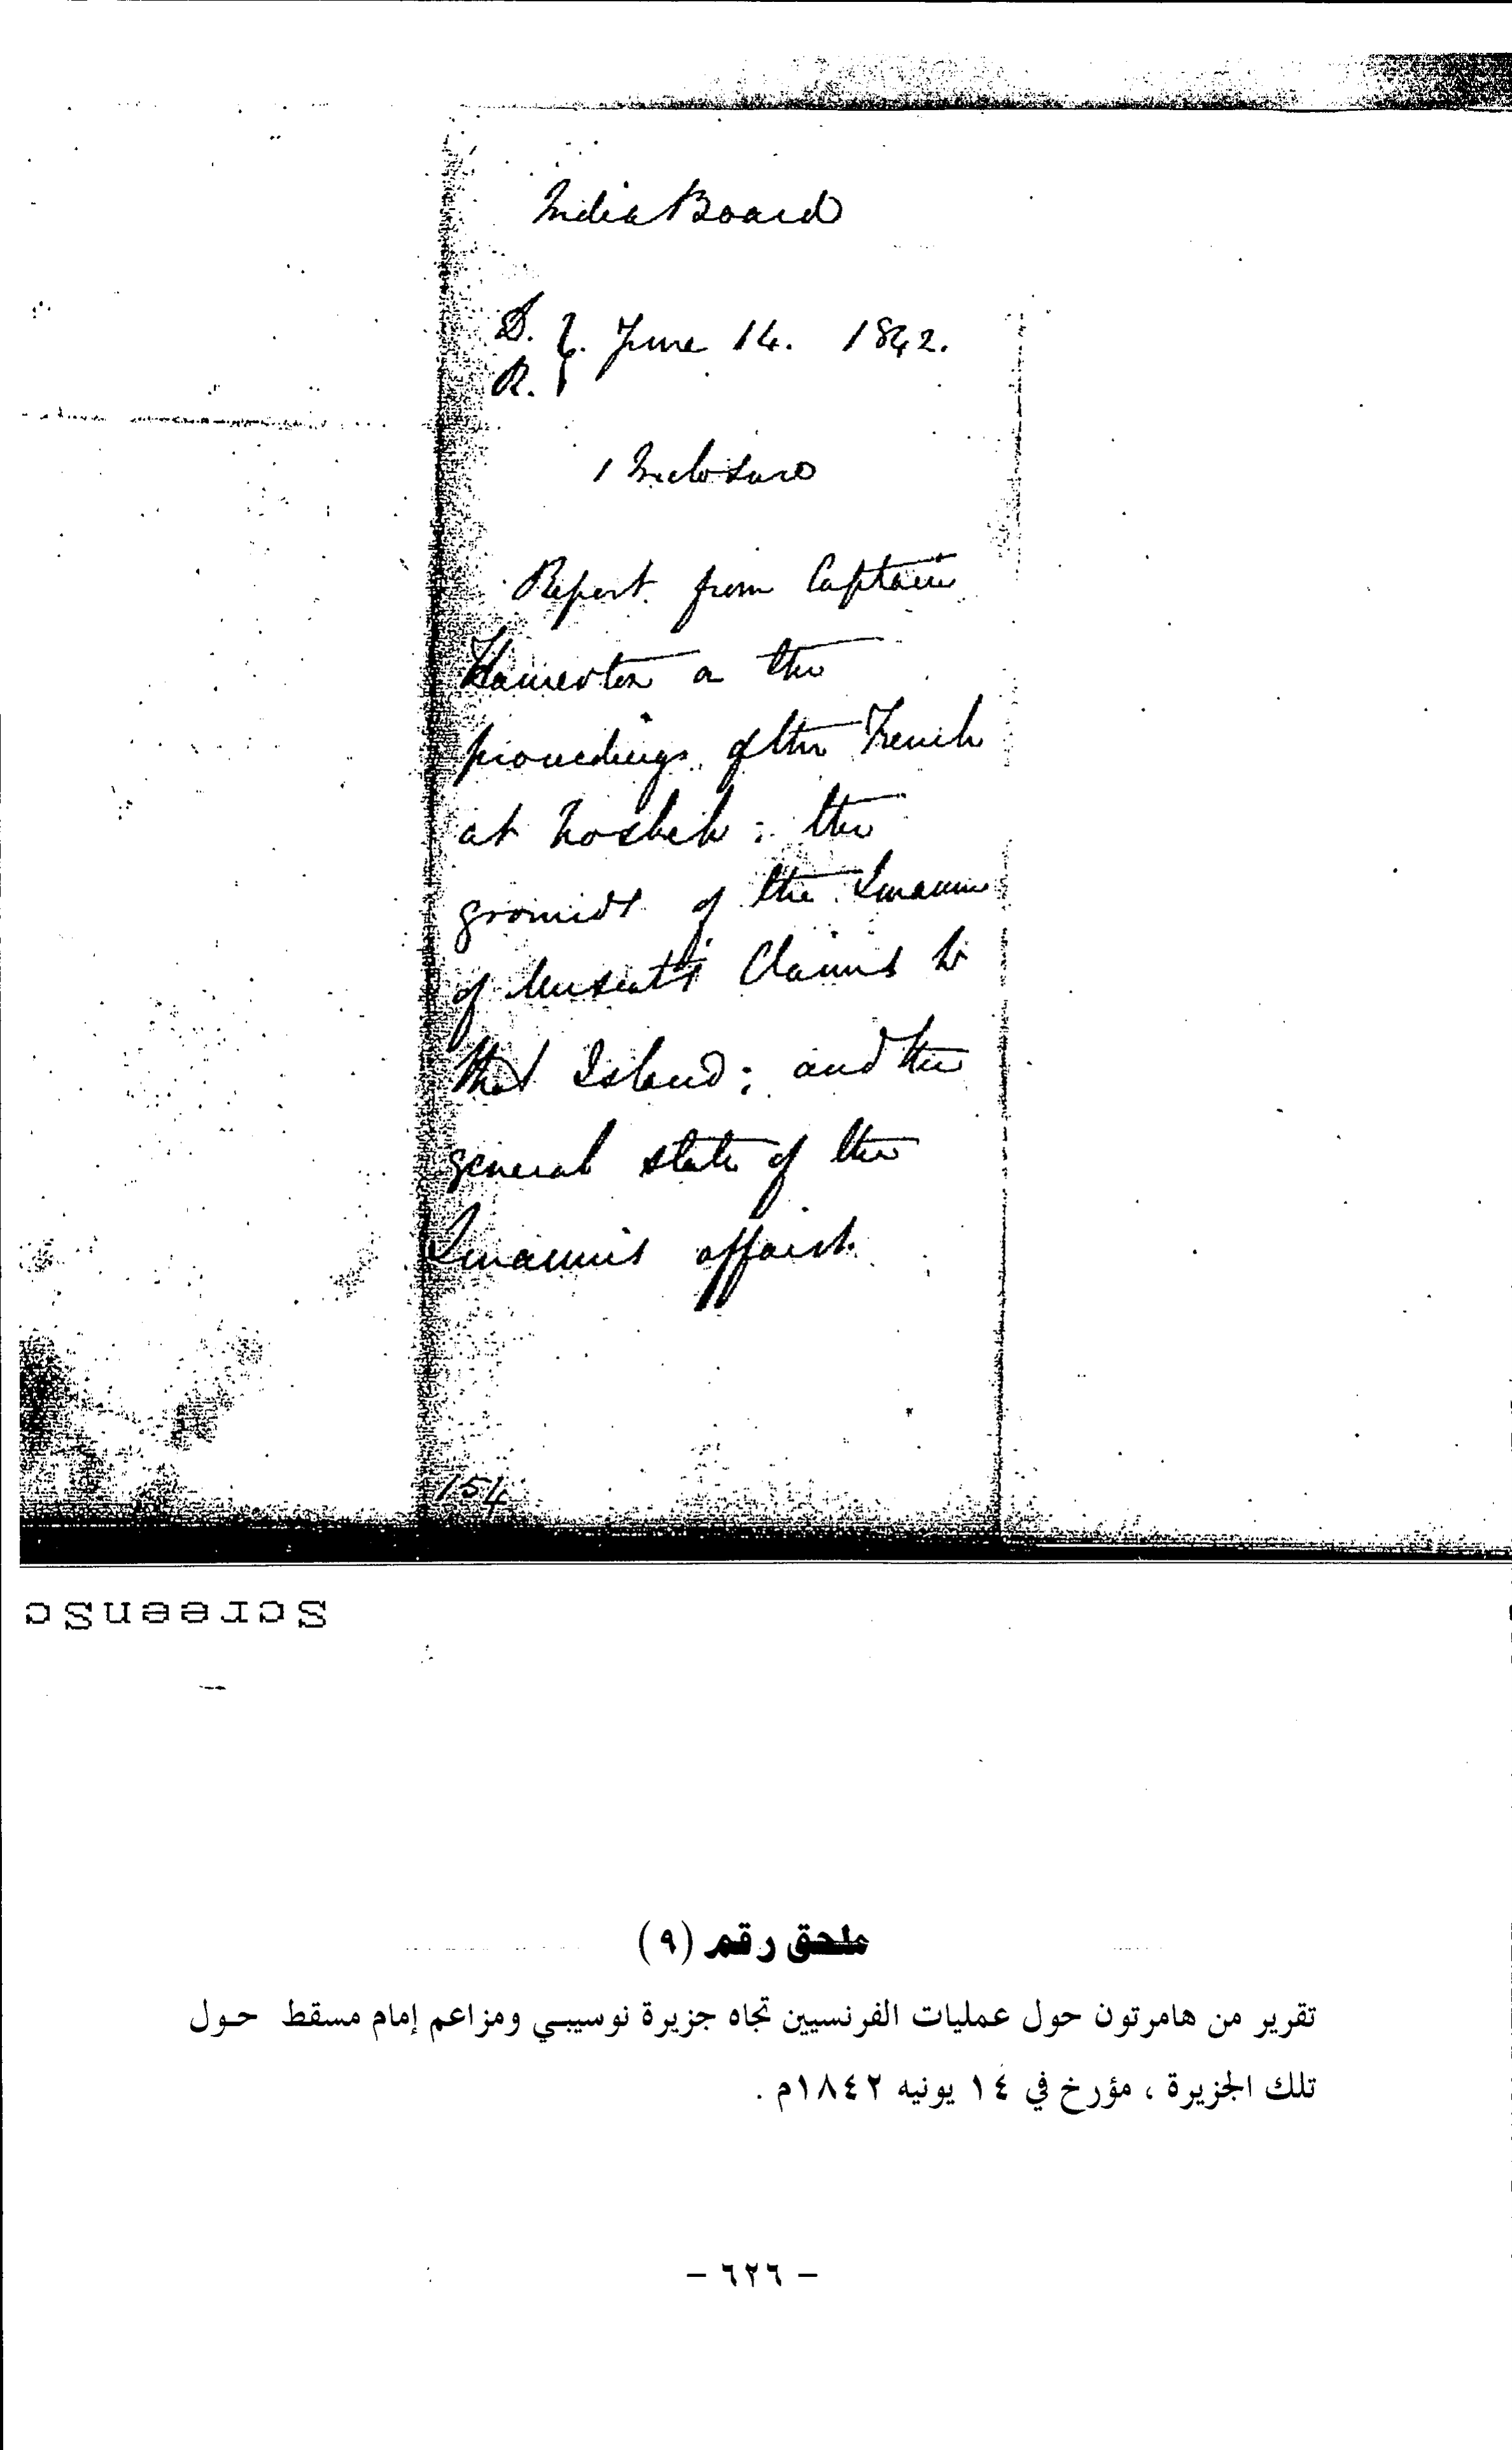 India Board
D. } June 14. 1842.
R. }
1 Inclosure
Report from Captain
Hamerton on the
proceedings of the French
at Nosbeh: the
grounds of the Imaum
of Muscat's Claims to
that Island; and the
general state of the
Imaum's affairs.
154
ScreenSc
ملحق رقم (٩)
تقرير من هامرتون حول عمليات الفرنسيين تجاه جزيرة نوسيبي ومزاعم إمام مسقط حول
تلك الجزيرة ، مؤرخ في ١٤ يونيه ١٨٤٢م .
- ٦٢٦ -